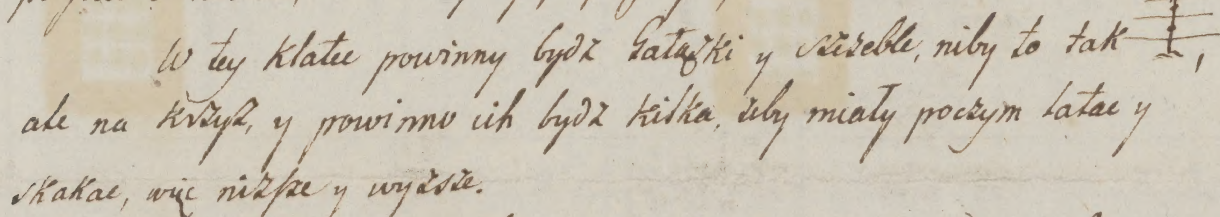 W tey klatce powinny bydz Gałązki y szczeble, niby to tak ,
ale na krzyż, y powinno ich bydz kilka, żeby miały poczym latac y
skakac, więc niższe y wyższe.